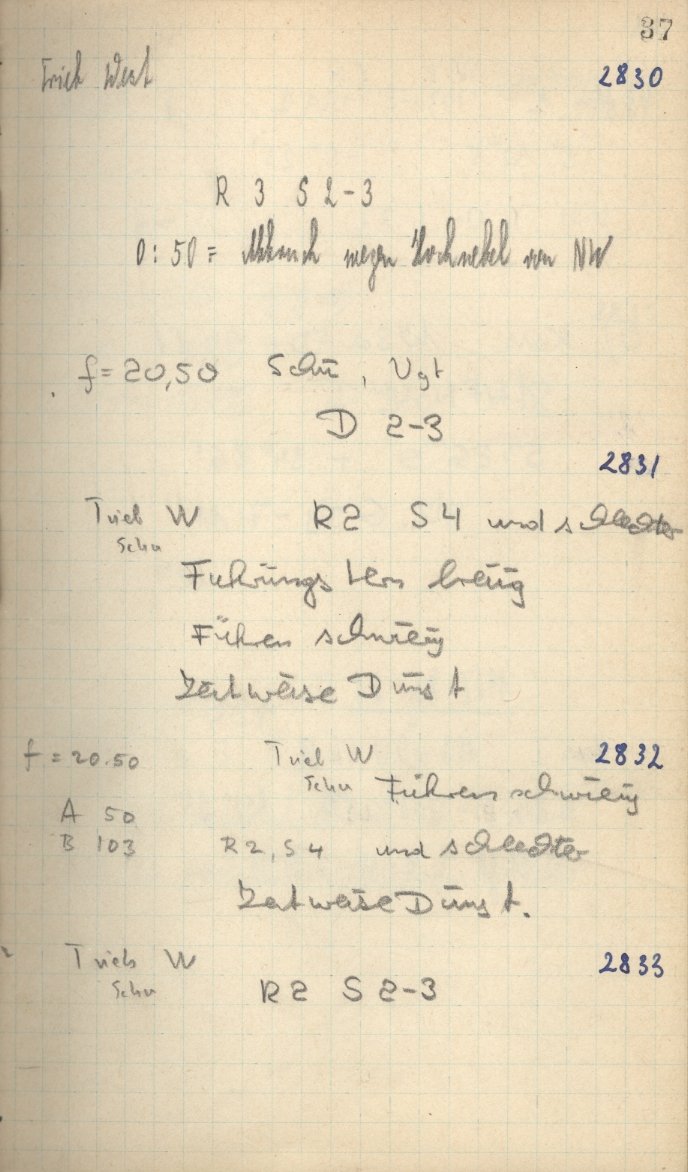 37
Trieb West 2830
R 3 S 2-3
0:50 = Abbruch wegen Hochnebel von NW
f=20,50 Schü, Vgt
D 2-3
2831
Trieb W R2 S4 und schlechter
Schu
Führungsstern
Führen schwierig
Zeitweise Dunst
f=20.50 Trieb W 2832
Schu Führen schwierig
A 50
B 103 R2, S4 und schlechter
Zeitweise Dunst.
Trieb W 2833
Schu R2 S 2-3